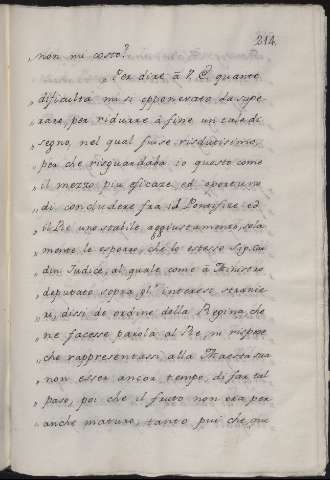 214
„ non mi costo?
„ Per dire à V. E. quante
„ dificultà mi si opponerato da supe-
„ rare, per ridurre à fine un tal di-
„ segno, nel qual fuisse risolutissimo,
„ per che risguardava io questo come
„ il mezzo piu eficaze ed oportuno
„ di concludere fra id Pontefice ed
„ il Rè uno stabile aggiustamento, sola-
„ mente le esporrò, che lo stesso Sig. Car-
„ din Judice, al quale come à Ministro
„ deputato sopra gl' interessi stranie-
„ ri, dissi de ordine della Regina, che
„ ne facesse parola al Rè, mi rispose
„ che rappresentassi alla Maestà sua
„ non esser ancor tempo, di far tal
„ paso, poi che il fruto non era per
„ anche maturo, tanto piú che que